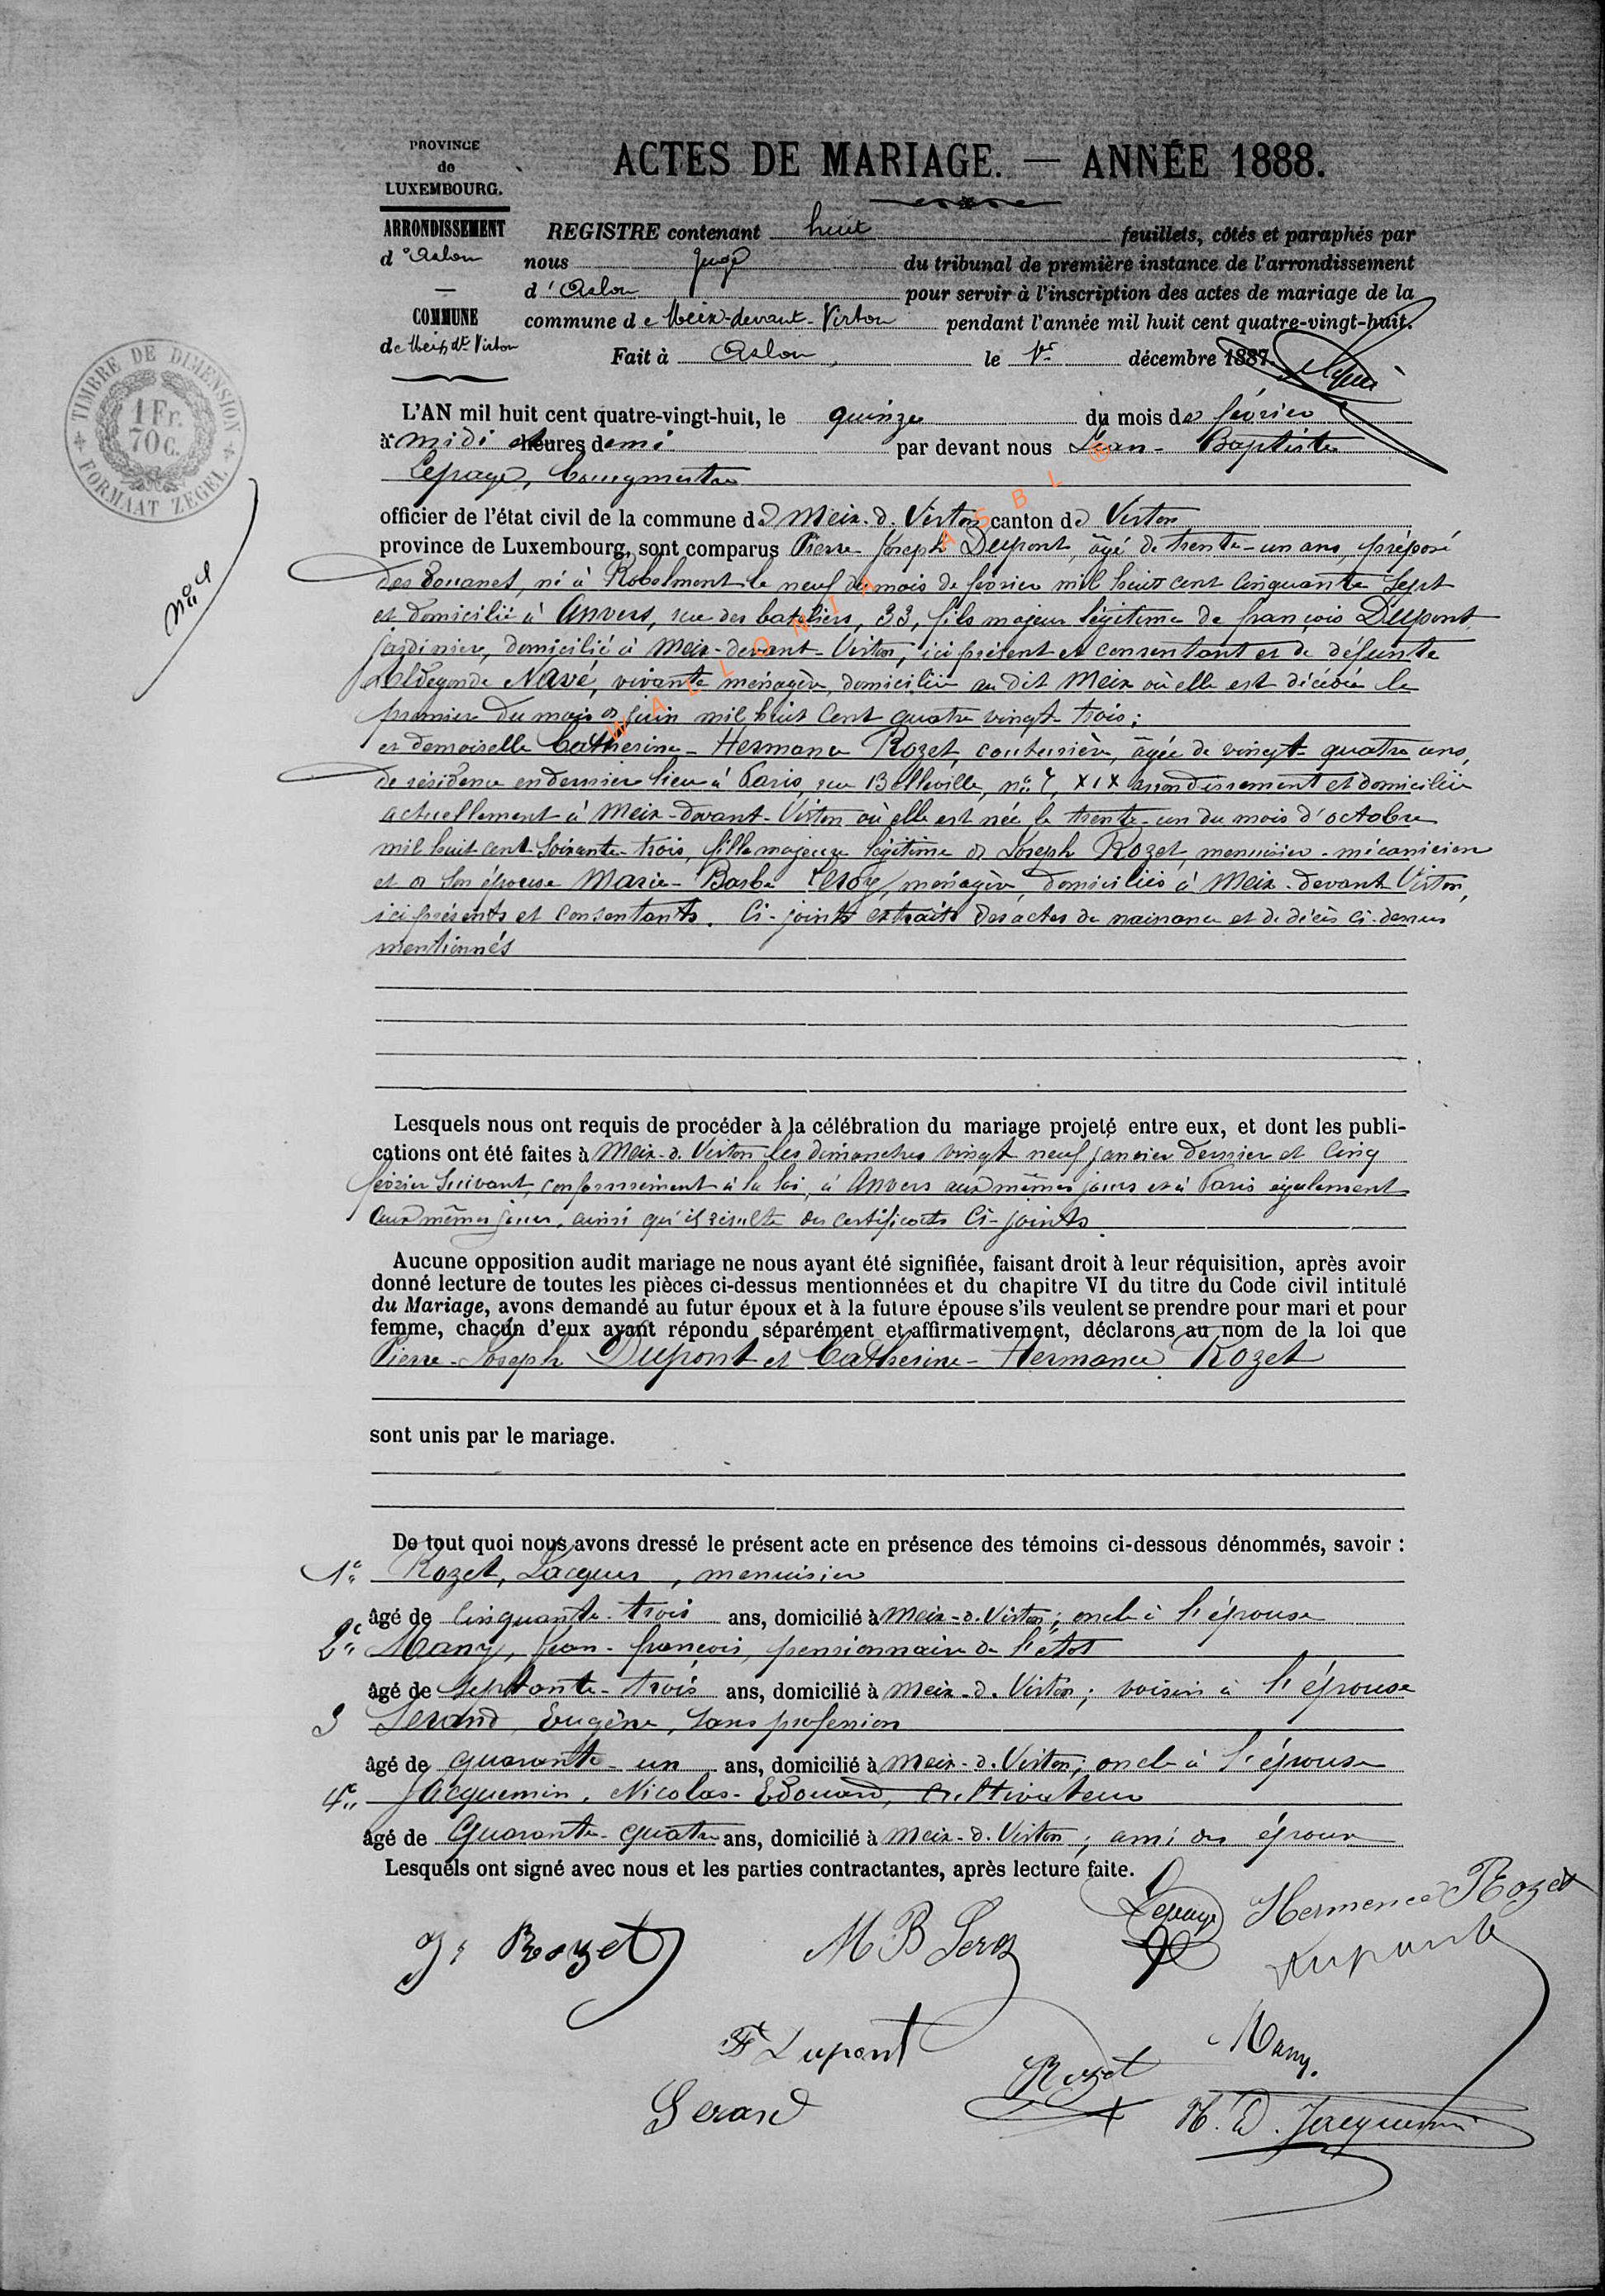 PROVINCE
de
LUXEMBOURG.
ACTES DE MARIAGE. — ANNÉE 1888.
ARRONDISSEMENT
d'Arlon
COMMUNE
de Meix dt Virton
REGISTRE contenant huit feuillets, côtés et paraphés par
nous Juge du tribunal de première instance de l'arrondissement
d'Arlon pour servir à l'inscription des actes de mariage de la
commune de Meix-devant-Virton pendant l'année mil huit cent quatre-vingt-huit.
Fait à Arlon, le 1er décembre 1887
TIMBRE DE DIMENSION
1 Fr.
70 C.
FORMAAT ZEGEL
No 1
L'AN mil huit cent quatre-vingt-huit, le quinze du mois de février
à midi et heures demi par devant nous Jean-Baptiste
Lepage, bourgmestre
officier de l'état civil de la commune de Meix-d. Virton canton de Virton,
province de Luxembourg, sont comparus Pierre Joseph Dupont, âgé de trente-un ans, préposé
des douanes, né à Robelmont le neuf du mois de février mil huit cent cinquante sept
et domicilié à Anvers, rue des bateliers, 33, fils majeur légitime de françois Dupont
jardinier, domicilié à Meix-devant-Virton, ici présent et consentant et de défunte
Aldegonde Navé, vivante ménagère, domiciliée au dit Meix où elle est décédée le
premier du mois de juin mil huit cent quatre vingt-trois;
et demoiselle Catherine-Hermance Rozet, couturière, âgée de vingt-quatre ans,
de résidence en dernier lieu à Paris, rue Belleville, no 7, XIX arrondissement et domiciliée
actuellement à Meix-devant-Virton où elle est née le trente-un du mois d'octobre
mil huit cent soixante-trois, fille majeure légitime de Joseph Rozet, menuisier-mécanicien
et de son épouse Marie-Barbe Leroy, ménagère domiciliés à Meix-devant Virton,
ici présents et consentants. Ci-joints extraits des actes de naissance et de décès ci-dessus
mentionnés
WALLONIA ASBL ®
Lesquels nous ont requis de procéder à la célébration du mariage projeté entre eux, et dont les publi-
cations ont été faites à Meix-d. Virton les dimanches vingt neuf janvier dernier et cinq
février suivant, conformément à la loi, à Anvers aux mêmes jours et à Paris également
aux mêmes jours, ainsi qu'il résulte des certificats ci-joints
Aucune opposition audit mariage ne nous ayant été signifiée, faisant droit à leur réquisition, après avoir
donné lecture de toutes les pièces ci-dessus mentionnées et du chapitre VI du titre du Code civil intitulé
du Mariage, avons demandé au futur époux et à la future épouse s'ils veulent se prendre pour mari et pour
femme, chacun d'eux ayant répondu séparément et affirmativement, déclarons au nom de la loi que
Pierre-Joseph Dupont et Catherine-Hermance Rozet
sont unis par le mariage.
De tout quoi nous avons dressé le présent acte en présence des témoins ci-dessous dénommés, savoir :
1e Rozet, Jacques, menuisier
âgé de cinquante-trois ans, domicilié à Meix-d. Virton; oncle à l'épouse
2e Many, Jean-françois, pensionnaire de l'état
âgé de septante-trois ans, domicilié à Meix-d. Virton; voisin à l'épouse
3 Gerard, Eugène, sans profession
âgé de quarante-un ans, domicilié à Meix-d. Virton; oncle à l'épouse
4e Jacquemin, Nicolas-Edouard, cultivateur
âgé de Quarante-quatre ans, domicilié à Meix-d. Virton; ami des époux
Lesquels ont signé avec nous et les parties contractantes, après lecture faite.
Lepage Hermence Rozet
J. Rozet M B Leroy Dupont
F Dupont Many.
Gerard Rozet N. E. Jacquemin